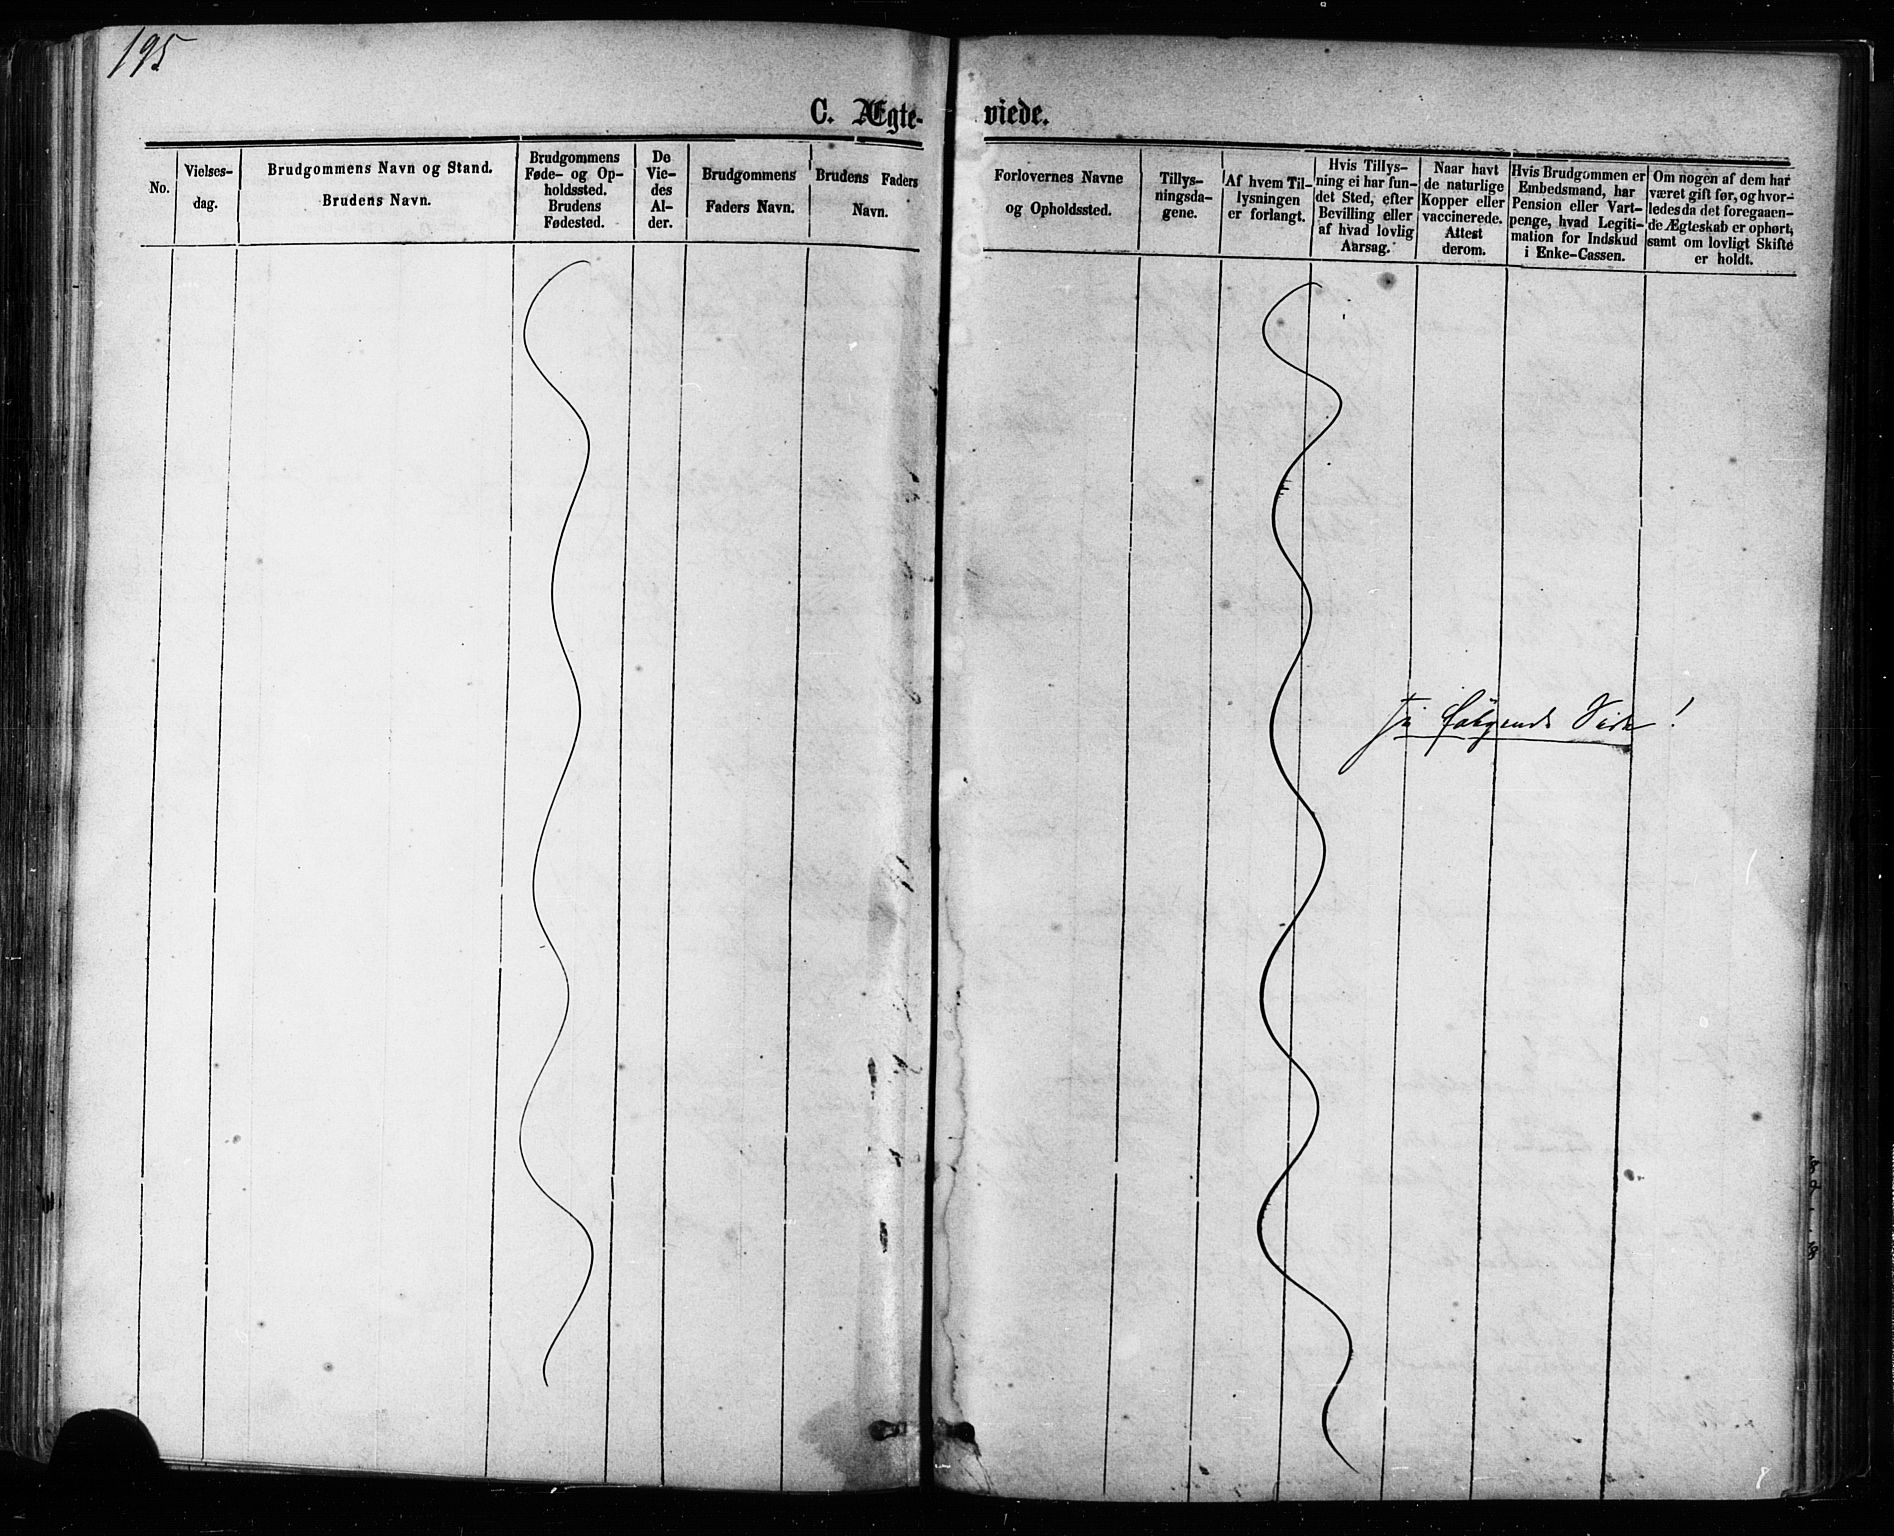 195
C. Ægte-
viede.
No.
Vielses-
dag.
Brudgommens Navn og Stand.
Brudens Navn.
Brudgommens
Føde- og Op-
holdssted.
Brudens
Fødested.
De
Vie-
des
Al-
der.
Brudgommens
Faders Navn.
Brudens Faders
Navn.
Forlovernes Navne
og Opholdssted.
Tillys-
ningsda-
gene.
Af hvem Til-
lysningen
er forlangt.
Hvis Tillys-
ning ei har fun-
det Sted, efter
Bevilling eller
af hvad lovlig
Aarsag.
Naar havt
de naturlige
Kopper eller
vaccinerede.
Attest
derom.
Hvis Brudgommen er
Embedsmand, har
Pension eller Vart-
penge, hvad Legiti-
mation for Indskud
i Enke-Cassen.
Om nogen af dem har
været gift før, og hvor-
ledes da det foregaaen-
de Ægteskab er ophørt,
samt om lovligt Skifte
er holdt.
følgende Side!